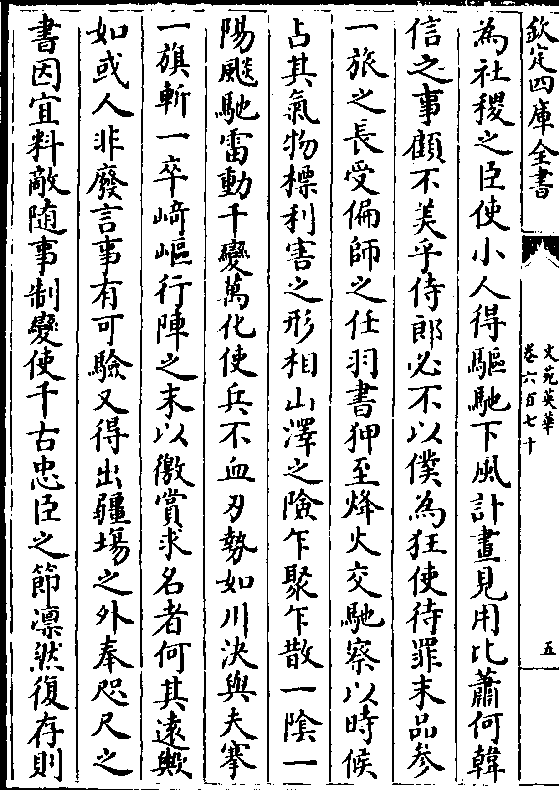 欽定四庫全書
文苑英華
卷六百七十
五
為社稷之臣使小人得驅馳下風計畫見用比蕭何韓
信之事顧不美乎侍郎必不以僕為狂使待罪末品參
一旅之長受偏師之任羽書狎至烽火交馳察以時候
占其氣物標利害之形相山澤之險乍聚乍散一陰一
陽飈馳雷動千變萬化使兵不血刃勢如川決與夫搴
一旗斬一卒崎嶇行陣之末以徼賞求名者何其遠歟
如或人非廢言事有可驗又得出疆埸之外奉咫尺之
書因宜料敵隨事制變使千古忠臣之節凛然復存則